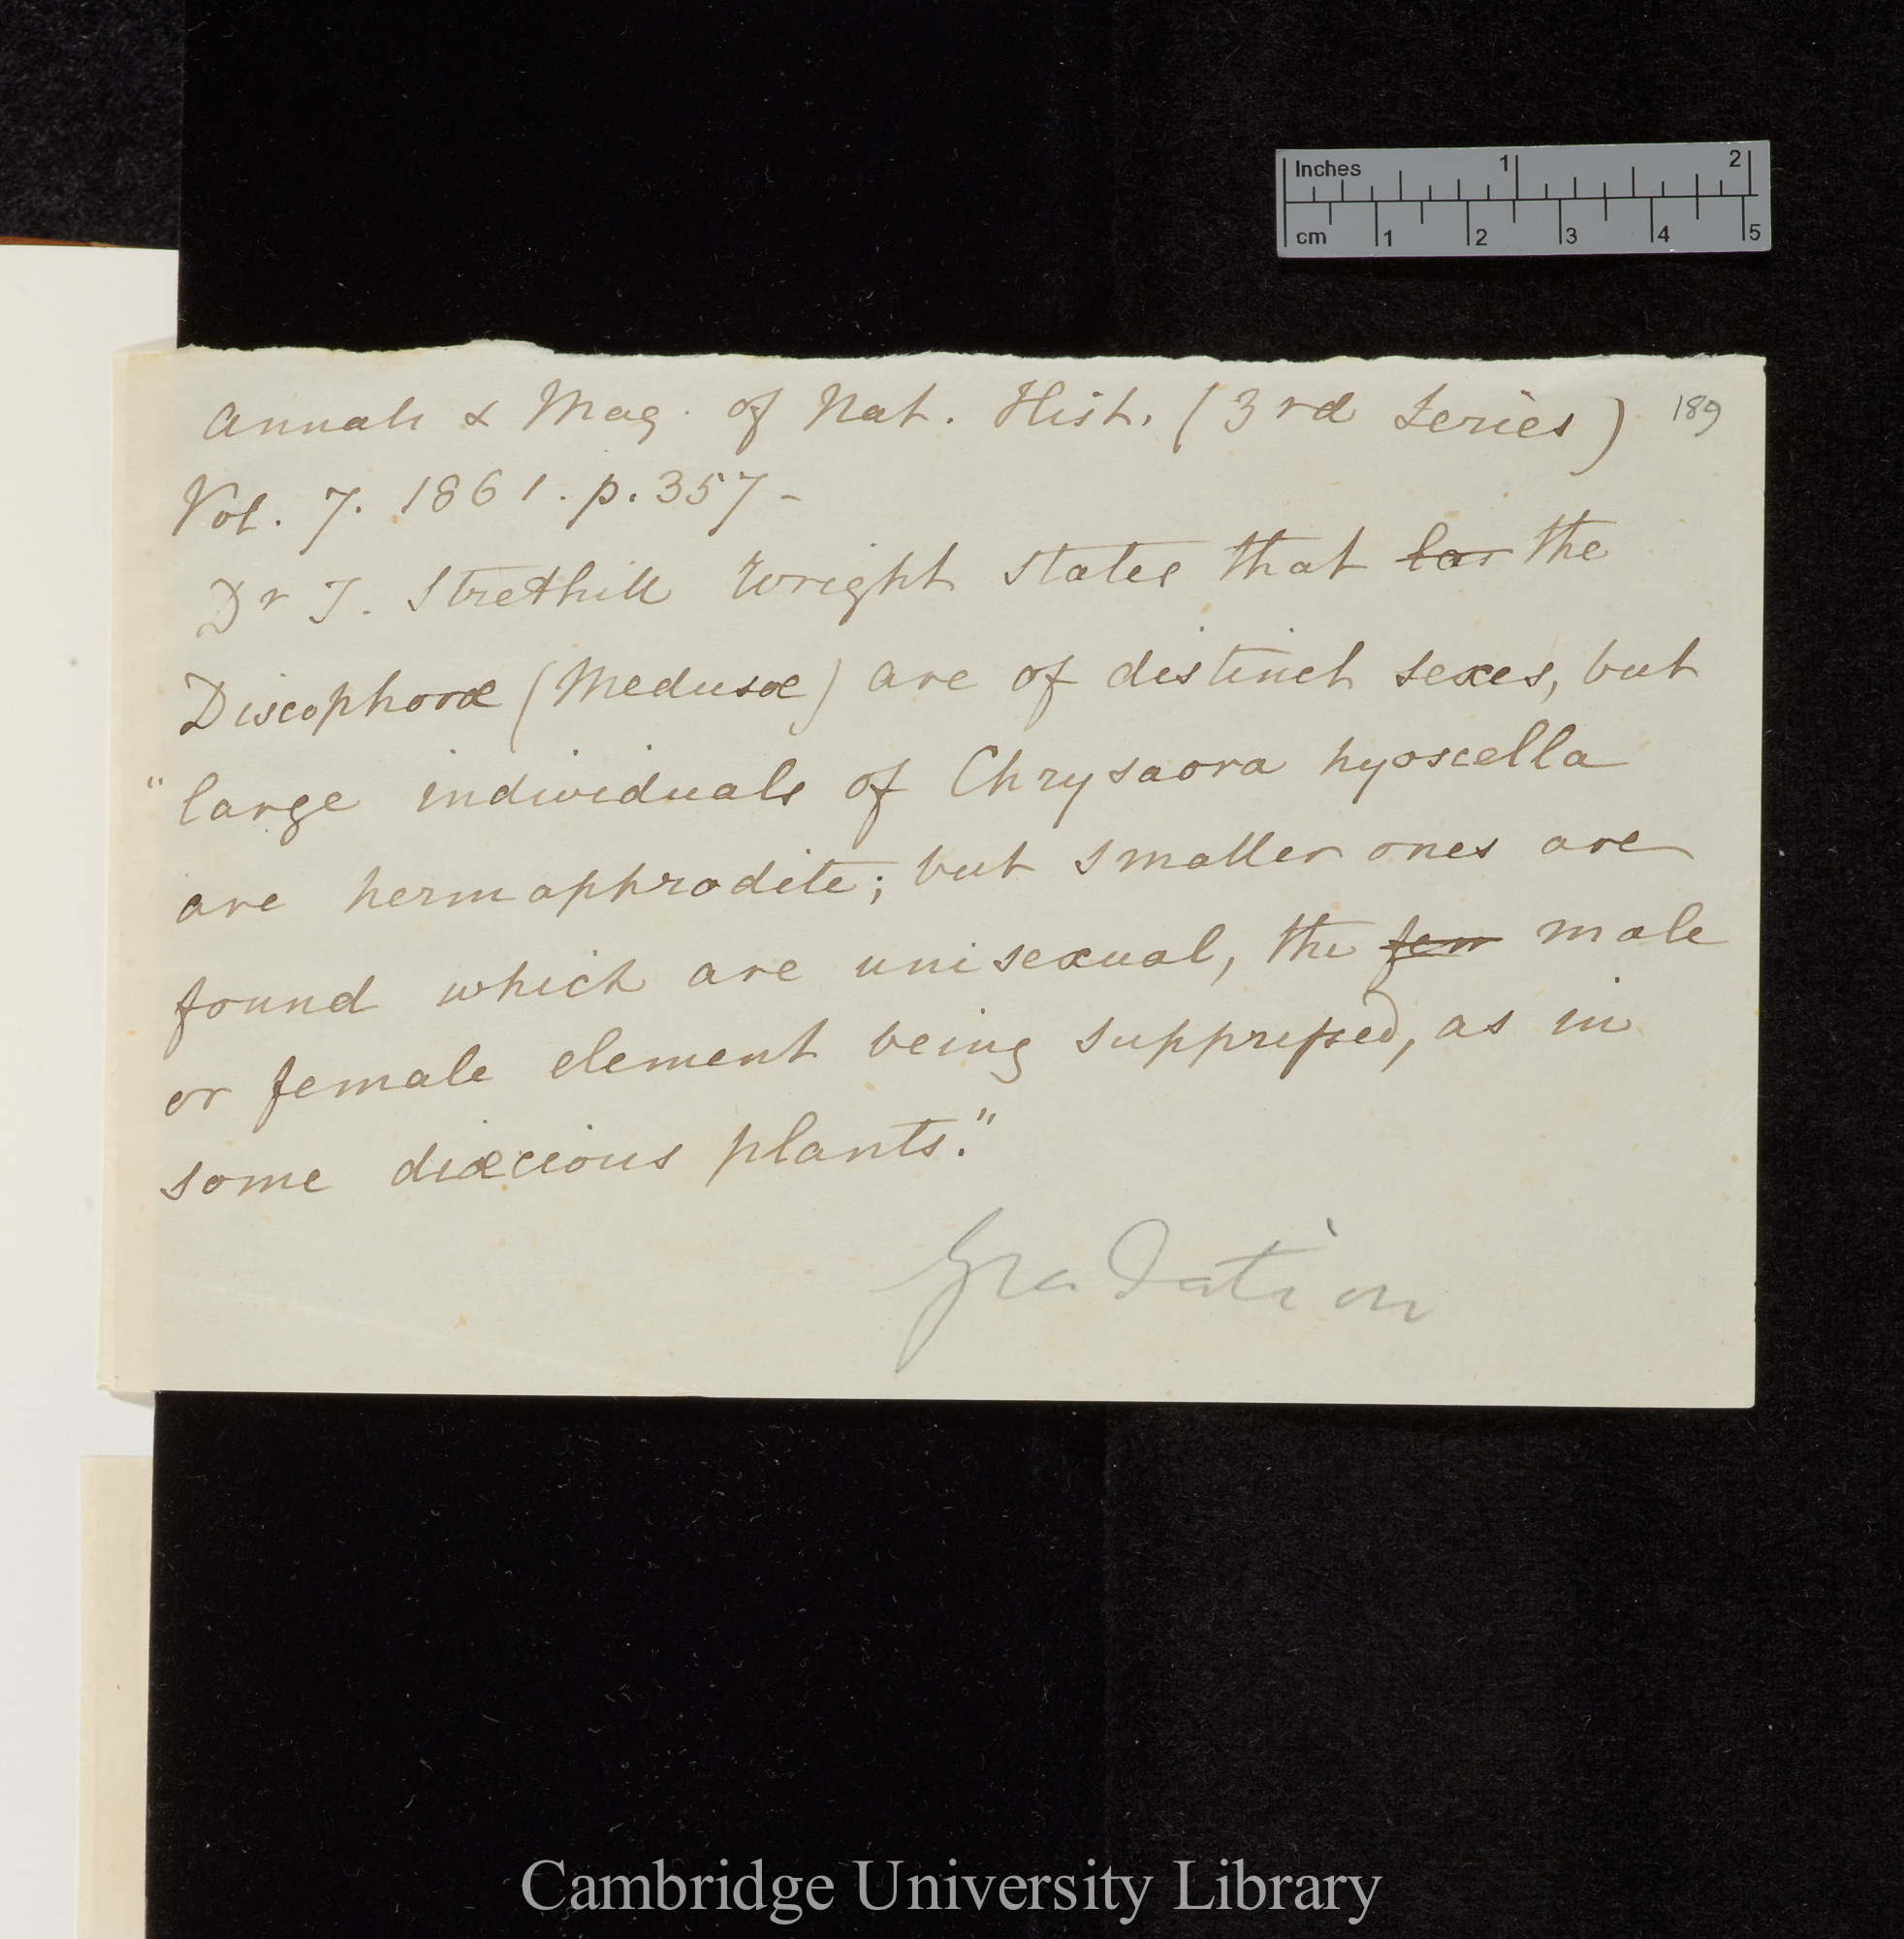 Inches 1 2
cm 1 2 3 4 5
Annals & Mag. of Nat. Hist. (3rd Series) 189
Vol. 7. 1861. p. 357-
Dr T. Strethill Wright states that lar the
Discophoræ (Medusæ) are of distinct sexes, but
"large individuals of Chrysaora hyoscella
are hermaphrodite; but smaller ones are
found which are unisexual, the fem male
or female element being suppressed, as in
some diœcious plants."
Gradation
Cambridge University Library